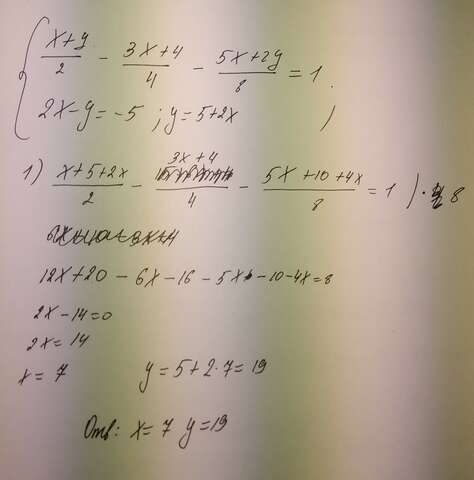 (x+y)/2 - (3x+4)/4 - (5x+2y)/8 = 1
2x-y=-5 ; y=5+2x
1) (x+5+2x)/2 - (3x+4)/4 - (5x+10+4x)/8 = 1 | · 8
12x+20 - 6x-16 - 5x-10-4x=8
2x-14=0
2x=14
x=7 y=5+2·7=19
Отв: x=7 y=19